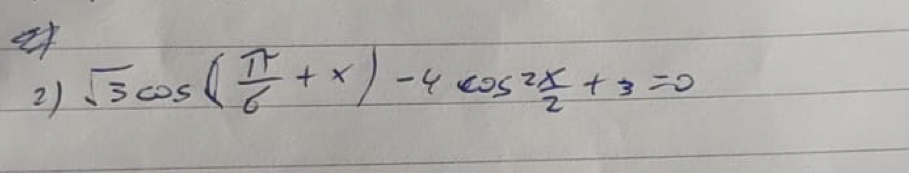 2) √3 cos(π/6 + x) - 4 cos²x/2 + 3 = 0